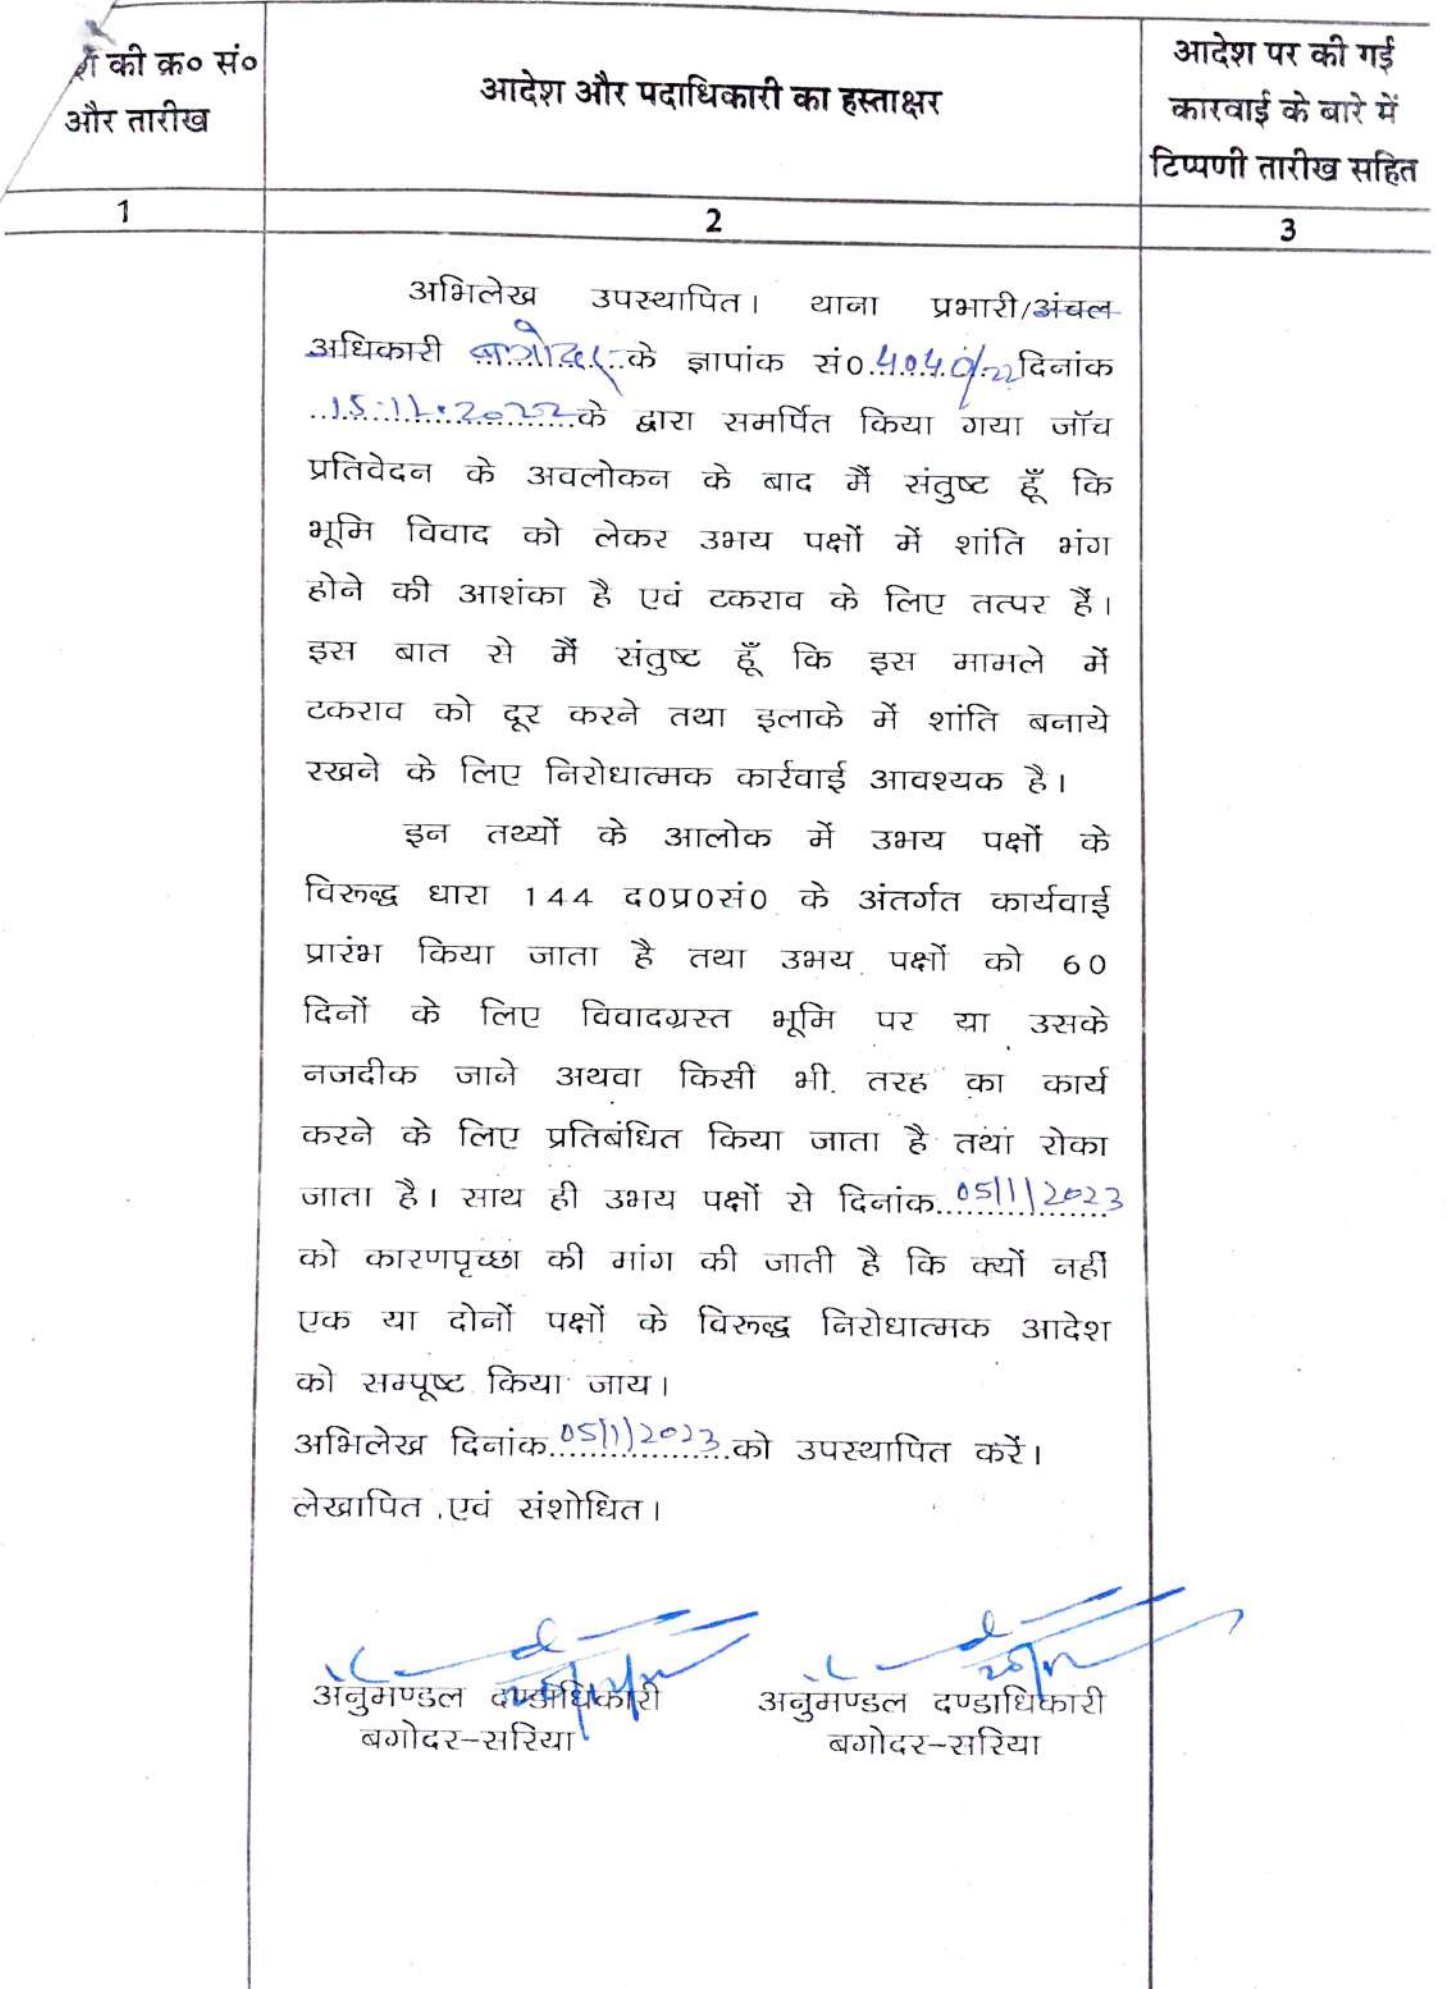 की क्र० सं०
और तारीख
आदेश और पदाधिकारी का हस्ताक्षर
आदेश पर की गई
कारवाई के बारे में
टिप्पणी तारीख सहित
1
2
3
अभिलेख उपस्थापित। थाना प्रभारी/अंचल
अधिकारी बगोदर के ज्ञापांक सं0 4040/22 दिनांक
15.11.2022 के द्वारा समर्पित किया गया जॉच
प्रतिवेदन के अवलोकन के बाद मैं संतुष्ट हूँ कि
भूमि विवाद को लेकर उभय पक्षों में शांति भंग
होने की आशंका है एवं टकराव के लिए तत्पर हैं।
इस बात से मैं संतुष्ट हूँ कि इस मामले में
टकराव को दूर करने तथा इलाके में शांति बनाये
रखने के लिए निरोधात्मक कार्रवाई आवश्यक है।
इन तथ्यों के आलोक में उभय पक्षों के
विरूद्ध धारा 144 द0प्र0सं0 के अंतर्गत कार्यवाई
प्रारंभ किया जाता है तथा उभय पक्षों को 60
दिनों के लिए विवादग्रस्त भूमि पर या उसके
नजदीक जाने अथवा किसी भी तरह का कार्य
करने के लिए प्रतिबंधित किया जाता है तथा रोका
जाता है। साथ ही उभय पक्षों से दिनांक 05/1/2023
को कारणपृच्छा की मांग की जाती है कि क्यों नहीं
एक या दोनों पक्षों के विरूद्ध निरोधात्मक आदेश
को सम्पूष्ट किया जाय।
अभिलेख दिनांक 05/1/2023 को उपस्थापित करें।
लेखापित एवं संशोधित।
अनुमण्डल दण्डाधिकारी
बगोदर–सरिया
अनुमण्डल दण्डाधिकारी
बगोदर–सरिया